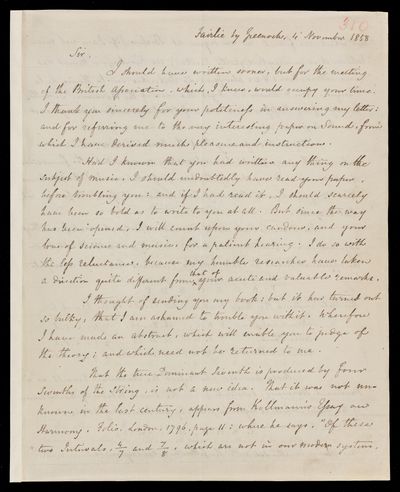 310
Fairlie by Greenock, 4 November 1858
Sir,
I should have written sooner, but for the meeting
of the British Association, which, I knew, would occupy your time.
I thank you sincerely for your politeness in answering my letter:
and for referring me to the very interesting paper on Sound, from
which I have derived much pleasure and instruction.
Had I known that you had written any thing on the
subject of music, I should undoubtedly have read your paper,
before troubling you: and if I had read it, I should scarcely
have been so bold as to write to you at all. But since the way
has been opened, I will count upon your candour, and your
love of science and music, for a patient hearing. I do so with
the less reluctance, because my humble researches have taken
a direction quite different from that of your acute and valuable remarks.
I thought of sending you my book: but it has turned out
so bulky, that I am ashamed to trouble you with it. Wherefore
I have made an abstract, which will enable you to judge of
the theory; and which need not be returned to me.
That the true Dominant Seventh is produced by four
Sevenths of the String, is not a new idea. That it was not un-
known in the last century, appears from Kollmann's Essay on
Harmony, Folio. London, 1796, page 11: where he says, "Of these
two Intervals, 4/7 and 7/8, which are not in our modern system,